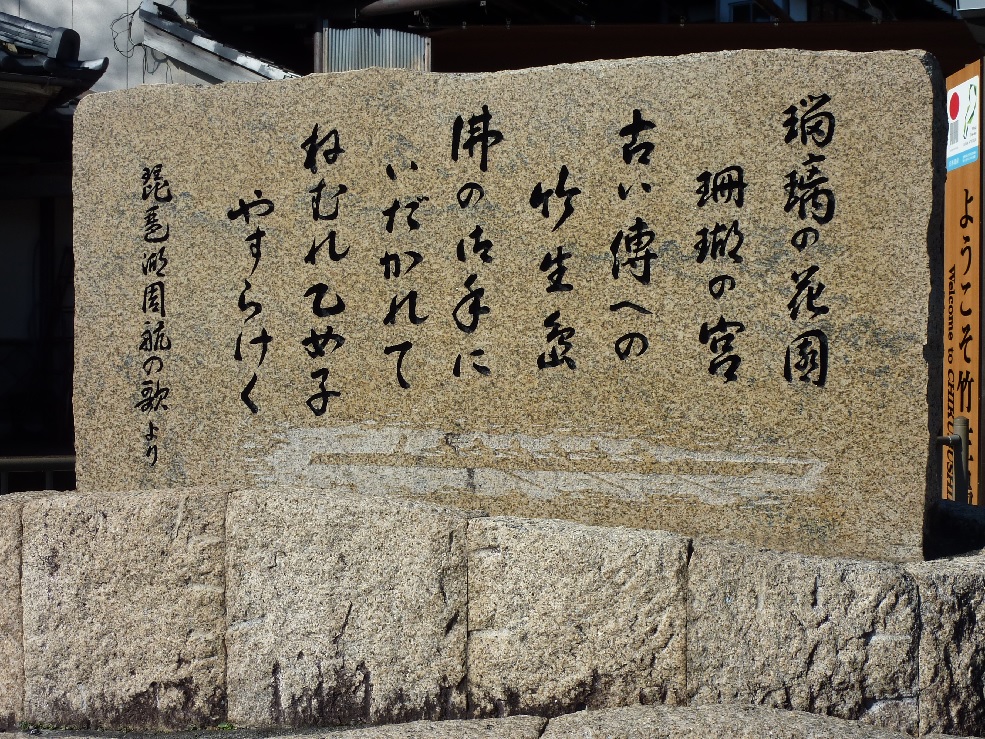 瑠璃の花園
珊瑚の宮
古い傳への
竹生島
佛の御手に
いだかれて
ねむれ乙め子
やすらけく
琵琶湖周航の歌より
ようこそ竹生島
Welcome to CHIKUBUSHI